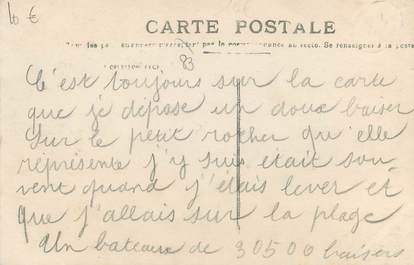 10 €
CARTE POSTALE
Tous les pays étrangers n'acceptent pas la correspondance au recto. Se renseigner à la poste
83
C'est toujours sur la carte
que je dépose un doux baiser
Sur le petit rocher qu'elle
représente j'y suis était sou
vent quand j'étais lever et
que j'allais sur la plage
Un bateaux de 30500 baisers